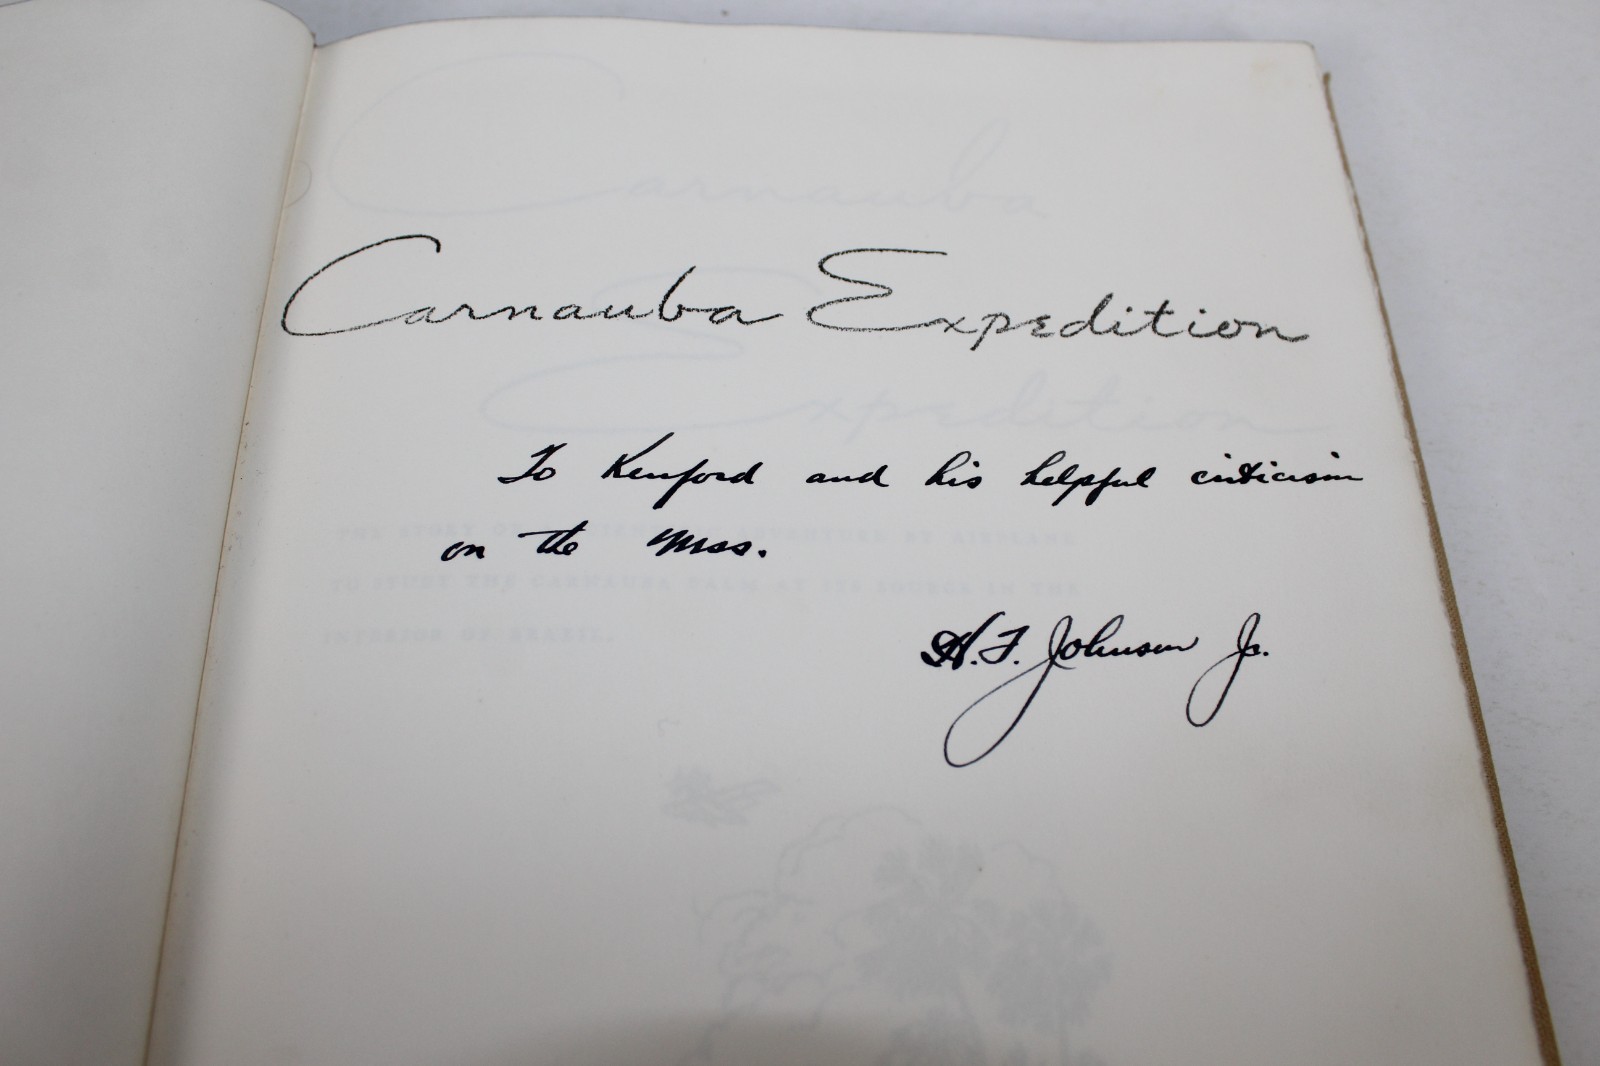 Carnauba Expedition
To Kenford and his helpful criticism
on the Mss.
H. F. Johnson Jr.
Carnauba
Expedition
THE STORY OF A SCIENTIFIC ADVENTURE BY AIRPLANE
TO STUDY THE CARNAUBA PALM AT ITS SOURCE IN THE
INTERIOR OF BRAZIL.